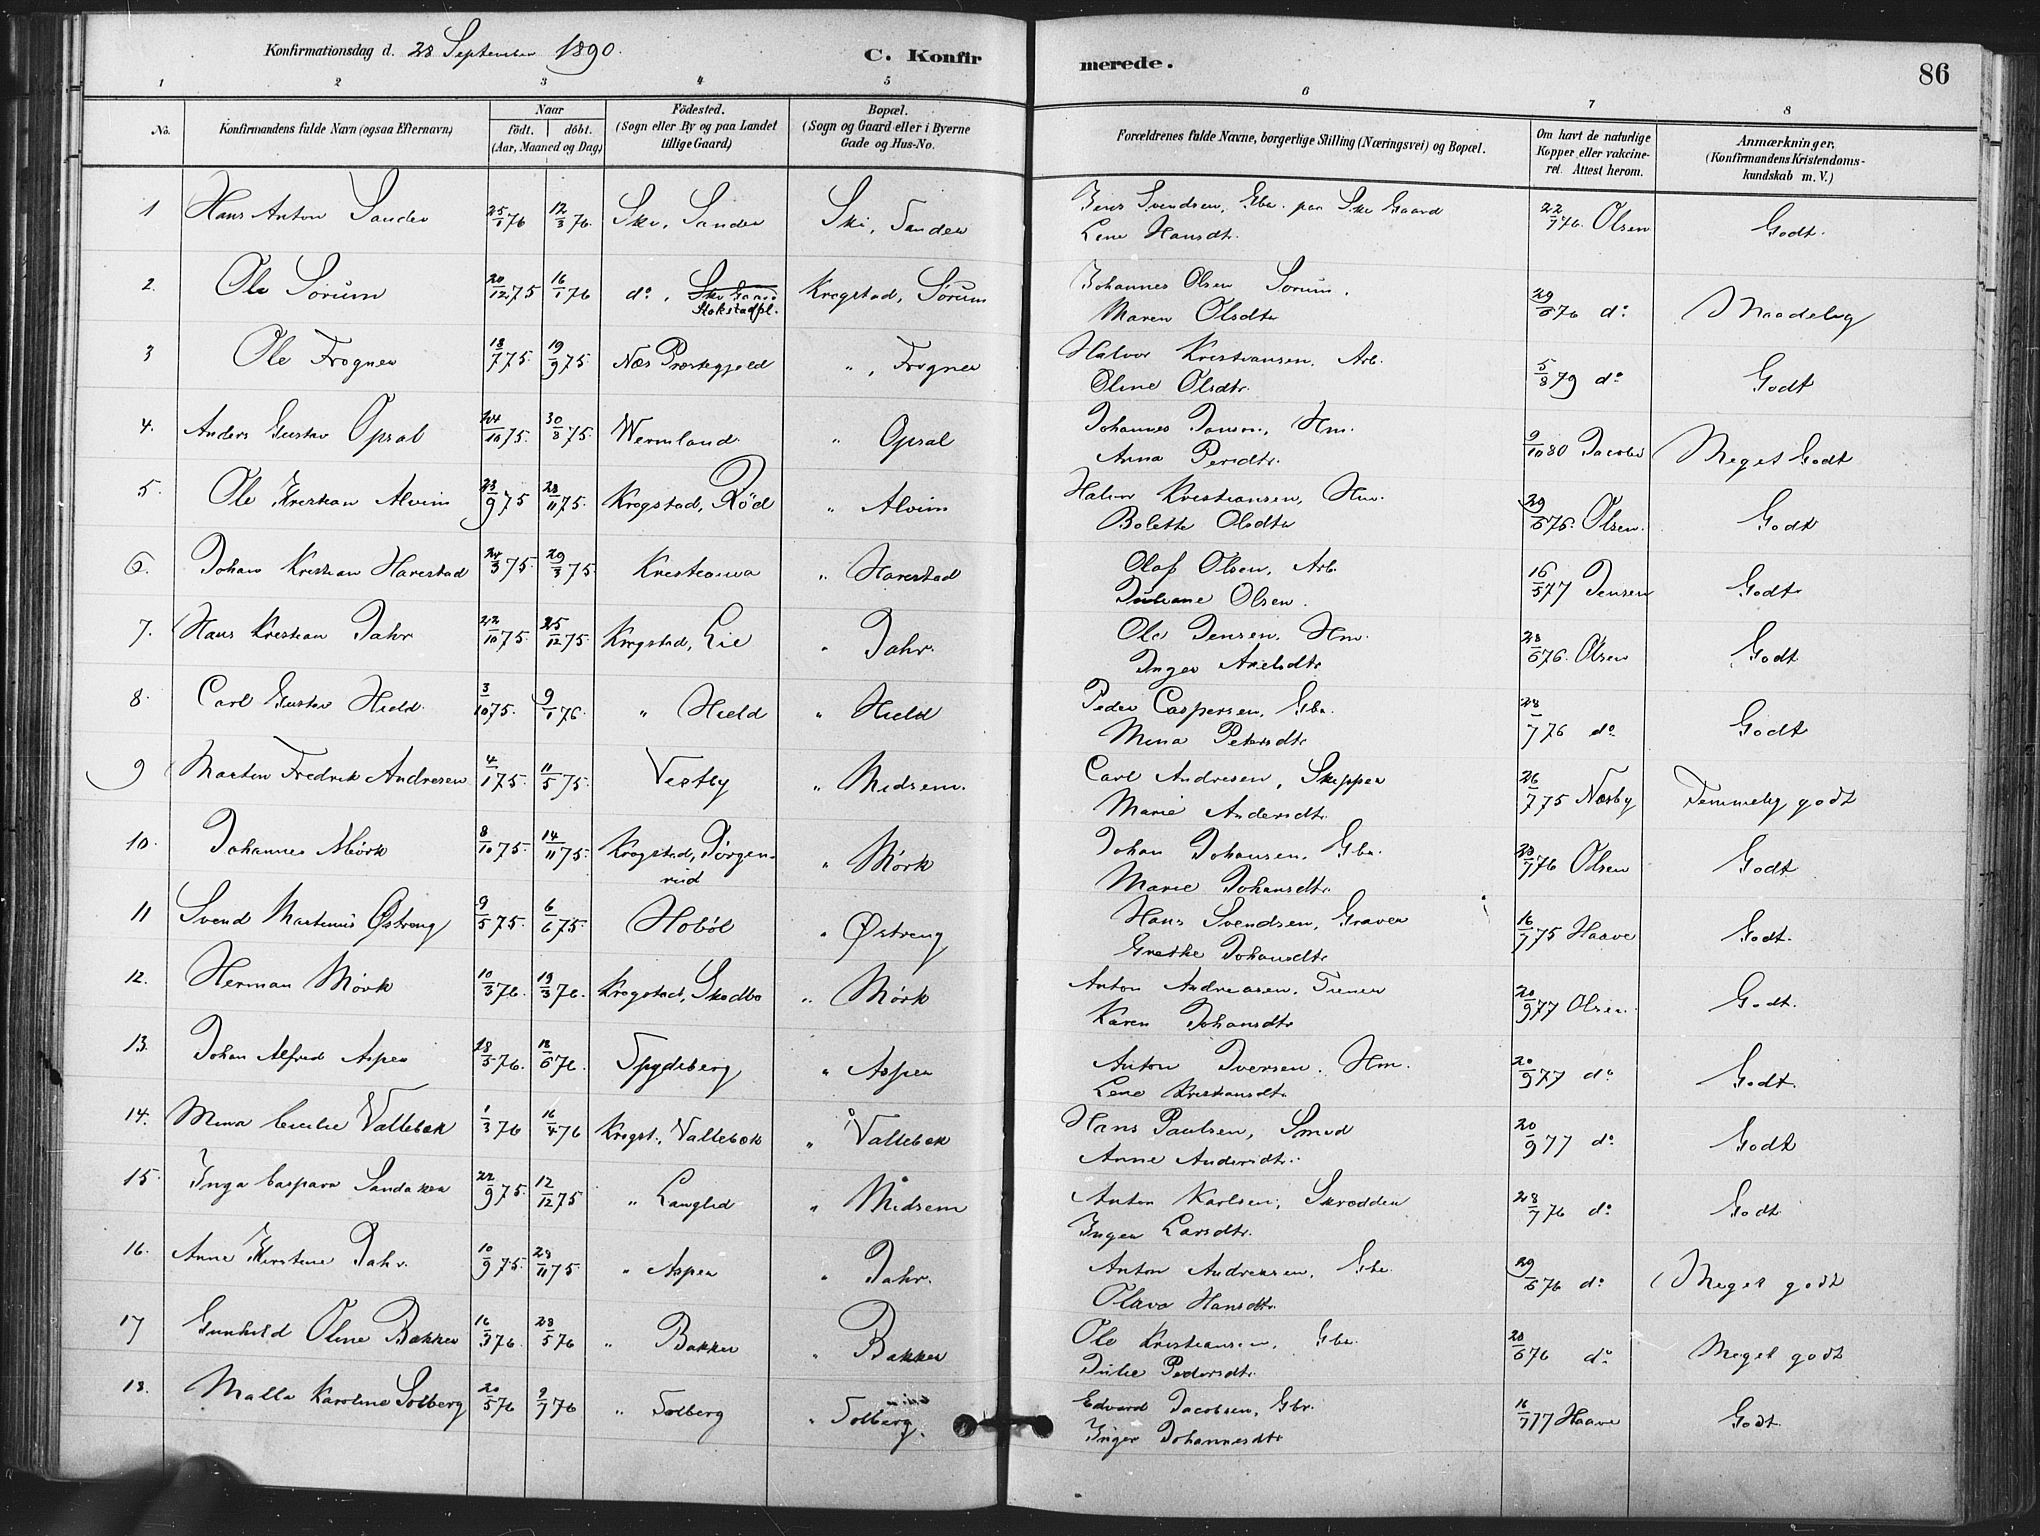 Konfirmationsdag d. 28 September 1890.
C. Konfirmerede.
86
1 2 3 4 5 6 7 8
No. Konfirmandens fulde Navn (ogsaa Efternavn) Naar födt. döbt. (Aar, Maaned og Dag) Födested. (Sogn eller By og paa Landet tillige Gaard) Bopæl. (Sogn og Gaard eller i Byerne Gade og Hus-No. Forældrenes fulde Navne, borgerlige Stilling (Næringsvei) og Bopæl. Om havt de naturlige Kopper eller vakcineret. Attest herom. Anmærkninger. (Konfirmandens Kristendomskundskab m. V.)
1 Hans Anton Sander 25/1 76 12/3 76. Ski, Sander Ski, Sander Jens Svendsen, Gbr. paa Ski Gaard 22/7 76. Olsen Godt.
Lene Hansdtr.
2. Ole Sørum 20/12 75 16/1 76 do, Stokstadpl. Krogstad, Sørum Johannes Olsen Sørum, 29/6 76 do Maadelig
Maren Olsdtr
3 Ole Frogner 18/7 75. 19/9 75. Næs Præstegjeld ", Frogner Halvor Kristiansen, Arb. 5/8 79 do Godt
Oline Olsdtr.
4. Anders Gustav Opsal 24/10 75. 30/8 75. Wermland. " Opsal Johannes Jonson, Hm. 9/10 80 Jacobs Meget Godt
Anna Persdtr.
5. Ole Kristian Alvim 23/9 75 28/11 75. Krogstad, Röd " Alvim Halvor Kristiansen, Hm. 29/6 76. Olsen. Godt
Bolette Olsdtr
6. Johan Kristian Harestad 24/3 75. 29/3 75. Kristiania " Harestad Olaf Olsen, Arb. 16/5 77 Jensen Godt
Juliane Olsen.
7. Hans Kristian Dahr 22/10 75. 25/12 75 Krogstad, Lie " Dahr. Ole Jensen, Hm. 28/6 76. Olsen Godt
Inger Axelsdtr
8. Carl Gustav Hield. 3/10 75. 9/1 76. " Hield " Hield Peder Caspersen, Gbr. 28/7 76 do Godt
Mina Petersdtr
9 Martin Fredrik Andresen 4/1 75. 11/5 75. Vestby " Midsem. Carl Andresen, Skipper 26/7 75 Næsby Temmelig godt
Marie Andersdtr.
10. Johannes Mörk 8/10 75. 14/11 75. Krogstad, Jörgenrud " Mörk Johan Johansen, Gbr. 28/7 76 Olsen Godt
Marie Johansdtr.
11 Svend Martinus Østreng 9/5 75. 6/6 75. Hobøl " Østreng Hans Svendsen, Graver 16/7 75 Haave Godt.
Grethe Johansdtr
12. Herman Mörk 10/3 76. 19/3 76. Krogstad, Skodbo " Mörk Anton Andreasen, Tiener 20/9 77 Olsen. Godt.
Karen Johansdtr
13. Johan Alfred Asper 28/5 76. 18/6 76. Spydeberg " Asper Anton Iversen, Hm. 20/9 77 do Godt.
Lene Kristiansdtr.
14. Mina Cecilie Vallebæk 1/3 76 16/4 76 Krogst., Vallebæk " Vallebæk Hans Paulsen, Smed 20/9 77 do Godt
Anne Andersdtr.
15. Inga Caspara Sandaker 22/9 75. 12/12 75 " Langlid " Midsem Anton Karlsen, Skrædder 28/7 76 do Godt
Inger Larsdtr.
16. Anne Kirstine Dahr. 10/9 75. 28/11 75 " Asper " Dahr. Anton Andreasen, Gbr. 29/6 76 do Meget godt
Olava Hansdtr.
17 Gunhild Oline Bakker 16/3 76. 28/5 76 " Bakker " Bakker Ole Kristiansen, Gbr. 28/6 76 do Meget godt
Julie Pedersdtr.
18. Malla Karoline Solberg 20/5 76 9/7 76 " Solberg " Solberg. Edvard Jacobsen, Gbr. 16/7 77 Haave Godt.
Inger Johannesdtr